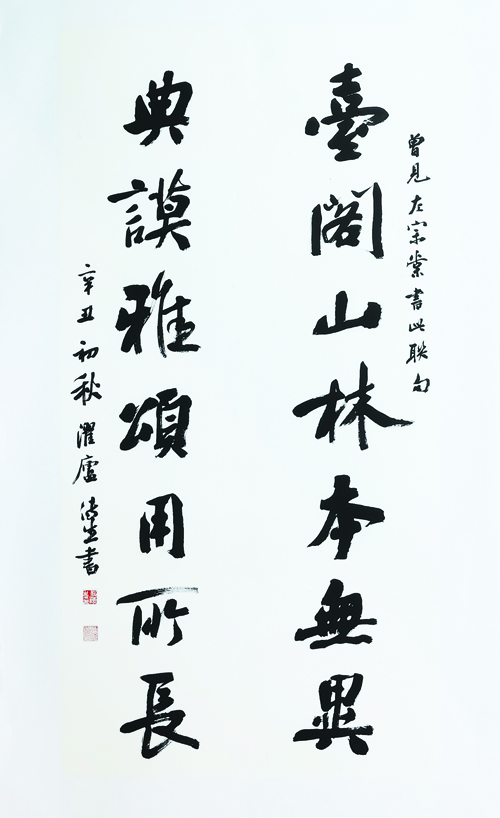 曾見左宗棠書此聯句
臺閣山林本無異
典謨雅頌用所長
辛丑初秋濯廬書